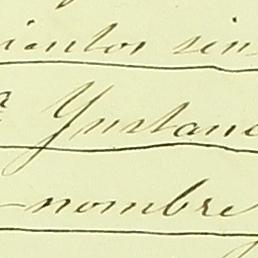 cientos sin
a Ynstanc
nombre